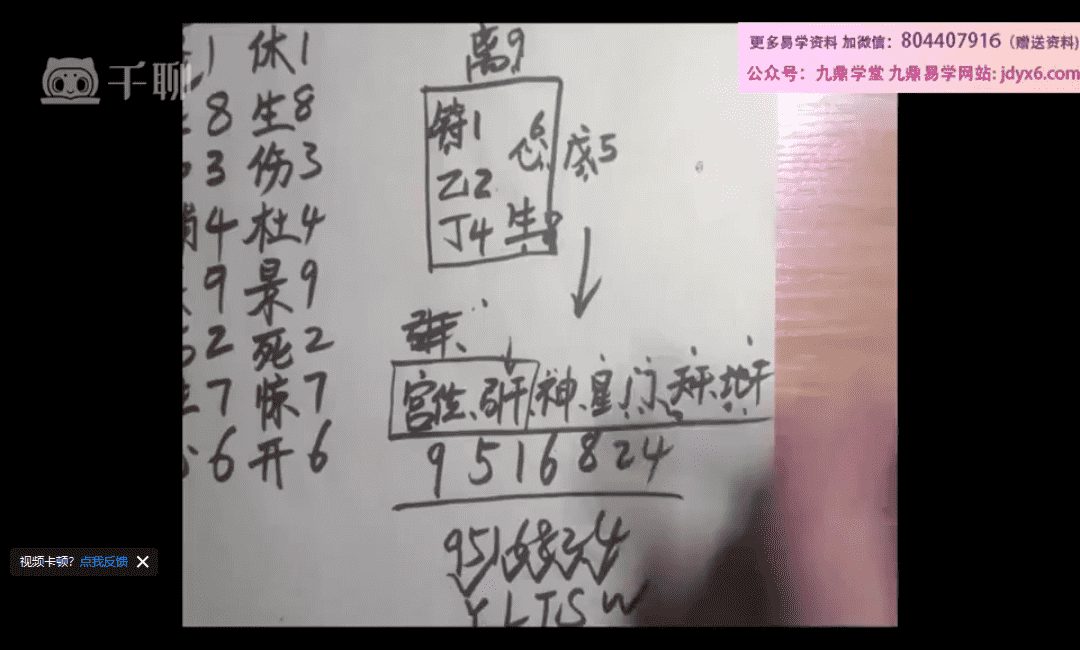 更多易学资料 加微信：804407916（赠送资料)
公众号：九鼎学堂 九鼎易学网站: jdyx6.com
千聊
1 休1
8 生8
3 伤3
4 杜4
9 景9
2 死2
7 惊7
6 开6
离9
符1 6
心
乙2
丁4 生8
戊5
宫位、引干、神、星、门、天干、地干
9 5 1 6 8 2 4
9516824
Y L T S W
视频卡顿? 点我反馈